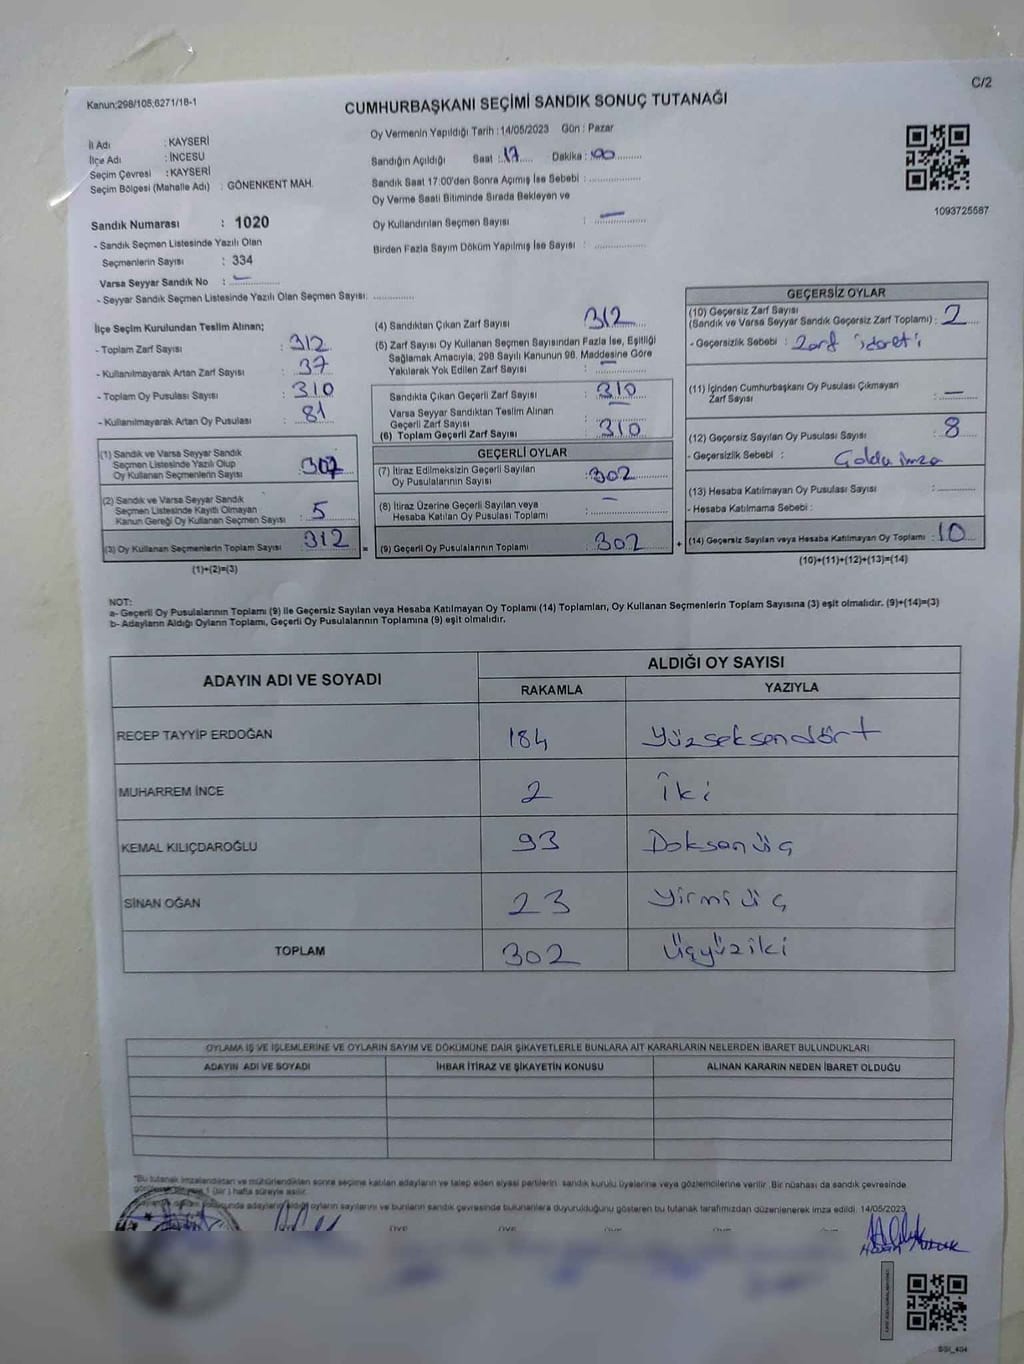 Kanun;298/105;6271/18-1
C/2
CUMHURBAŞKANI SEÇİMİ SANDIK SONUÇ TUTANAĞI
İl Adı : KAYSERİ
İlçe Adı : İNCESU
Seçim Çevresi : KAYSERİ
Seçim Bölgesi (Mahalle Adı) : GÖNENKENT MAH.
Oy Vermenin Yapıldığı Tarih : 14/05/2023 Gün : Pazar
Sandığın Açıldığı Saat : 17 Dakika : 00
Sandık Saat 17:00'den Sonra Açımış İse Sebebi :
Oy Verme Saati Bitiminde Sırada Bekleyen ve
Oy Kullandırılan Seçmen Sayısı : —
Birden Fazla Sayım Döküm Yapılmış İse Sayısı :
1093725587
Sandık Numarası : 1020
- Sandık Seçmen Listesinde Yazılı Olan
Seçmenlerin Sayısı : 334
Varsa Seyyar Sandık No : —
- Seyyar Sandık Seçmen Listesinde Yazılı Olan Seçmen Sayısı:
İlçe Seçim Kurulundan Teslim Alınan;
- Toplam Zarf Sayısı : 312
- Kullanılmayarak Artan Zarf Sayısı : 37
- Toplam Oy Pusulası Sayısı : 310
- Kullanılmayarak Artan Oy Pusulası : 81
(1) Sandık ve Varsa Seyyar Sandık
Seçmen Listesinde Yazılı Olup
Oy Kullanan Seçmenlerin Sayısı : 307
(2) Sandık ve Varsa Seyyar Sandık
Seçmen Listesinde Kayıtlı Olmayan
Kanun Gereği Oy Kullanan Seçmen Sayısı : 5
(3) Oy Kullanan Seçmenlerin Toplam Sayısı : 312
(1)+(2)=(3)
(4) Sandıktan Çıkan Zarf Sayısı : 312
(5) Zarf Sayısı Oy Kullanan Seçmen Sayısından Fazla İse, Eşitliği
Sağlamak Amacıyla, 298 Sayılı Kanunun 98. Maddesine Göre
Yakılarak Yok Edilen Zarf Sayısı : —
Sandıkta Çıkan Geçerli Zarf Sayısı : 310
Varsa Seyyar Sandıktan Teslim Alınan
Geçerli Zarf Sayısı : —
(6) Toplam Geçerli Zarf Sayısı : 310
GEÇERLİ OYLAR
(7) İtiraz Edilmeksizin Geçerli Sayılan
Oy Pusulalarının Sayısı : 302
(8) İtiraz Üzerine Geçerli Sayılan veya
Hesaba Katılan Oy Pusulası Toplamı : —
= (9) Geçerli Oy Pusulalarının Toplamı : 302
GEÇERSİZ OYLAR
(10) Geçersiz Zarf Sayısı
(Sandık ve Varsa Seyyar Sandık Geçersiz Zarf Toplamı) : 2
- Geçersizlik Sebebi : Zarf işareti
(11) İçinden Cumhurbaşkanı Oy Pusulası Çıkmayan
Zarf Sayısı : —
(12) Geçersiz Sayılan Oy Pusulası Sayısı : 8
- Geçersizlik Sebebi : imza
(13) Hesaba Katılmayan Oy Pusulası Sayısı :
- Hesaba Katılmama Sebebi :
+ (14) Geçersiz Sayılan veya Hesaba Katılmayan Oy Toplamı : 10
(10)+(11)+(12)+(13)=(14)
NOT:
a- Geçerli Oy Pusulalarının Toplamı (9) ile Geçersiz Sayılan veya Hesaba Katılmayan Oy Toplamı (14) Toplamları, Oy Kullanan Seçmenlerin Toplam Sayısına (3) eşit olmalıdır. (9)+(14)=(3)
b- Adayların Aldığı Oyların Toplamı, Geçerli Oy Pusulalarının Toplamına (9) eşit olmalıdır.
ADAYIN ADI VE SOYADI
ALDIĞI OY SAYISI
RAKAMLA YAZIYLA
RECEP TAYYİP ERDOĞAN 184 Yüzseksendört
MUHARREM İNCE 2 İki
KEMAL KILIÇDAROĞLU 93 Doksanüç
SİNAN OĞAN 23 Yirmiüç
TOPLAM 302 Üçyüziki
OYLAMA İŞ VE İŞLEMLERİNE VE OYLARIN SAYIM VE DÖKÜMÜNE DAİR ŞİKAYETLERLE BUNLARA AİT KARARLARIN NELERDEN İBARET BULUNDUKLARI
ADAYIN ADI VE SOYADI İHBAR İTİRAZ VE ŞİKAYETİN KONUSU ALINAN KARARIN NEDEN İBARET OLDUĞU
"Bu tutanak imzalandıktan ve mühürlendikten sonra seçime katılan adayların ve talep eden siyasi partilerin sandık kurulu üyelerine veya gözlemcilerine verilir. Bir nüshası da sandık çevresinde
1 (bir) hafta süreyle asılır.
adayların aldığı oyların sayılarını ve bunların sandık çevresinde bulunanlara duyurulduğunu gösteren bu tutanak tarafımızdan düzenlenerek imza edildi. 14/05/2023